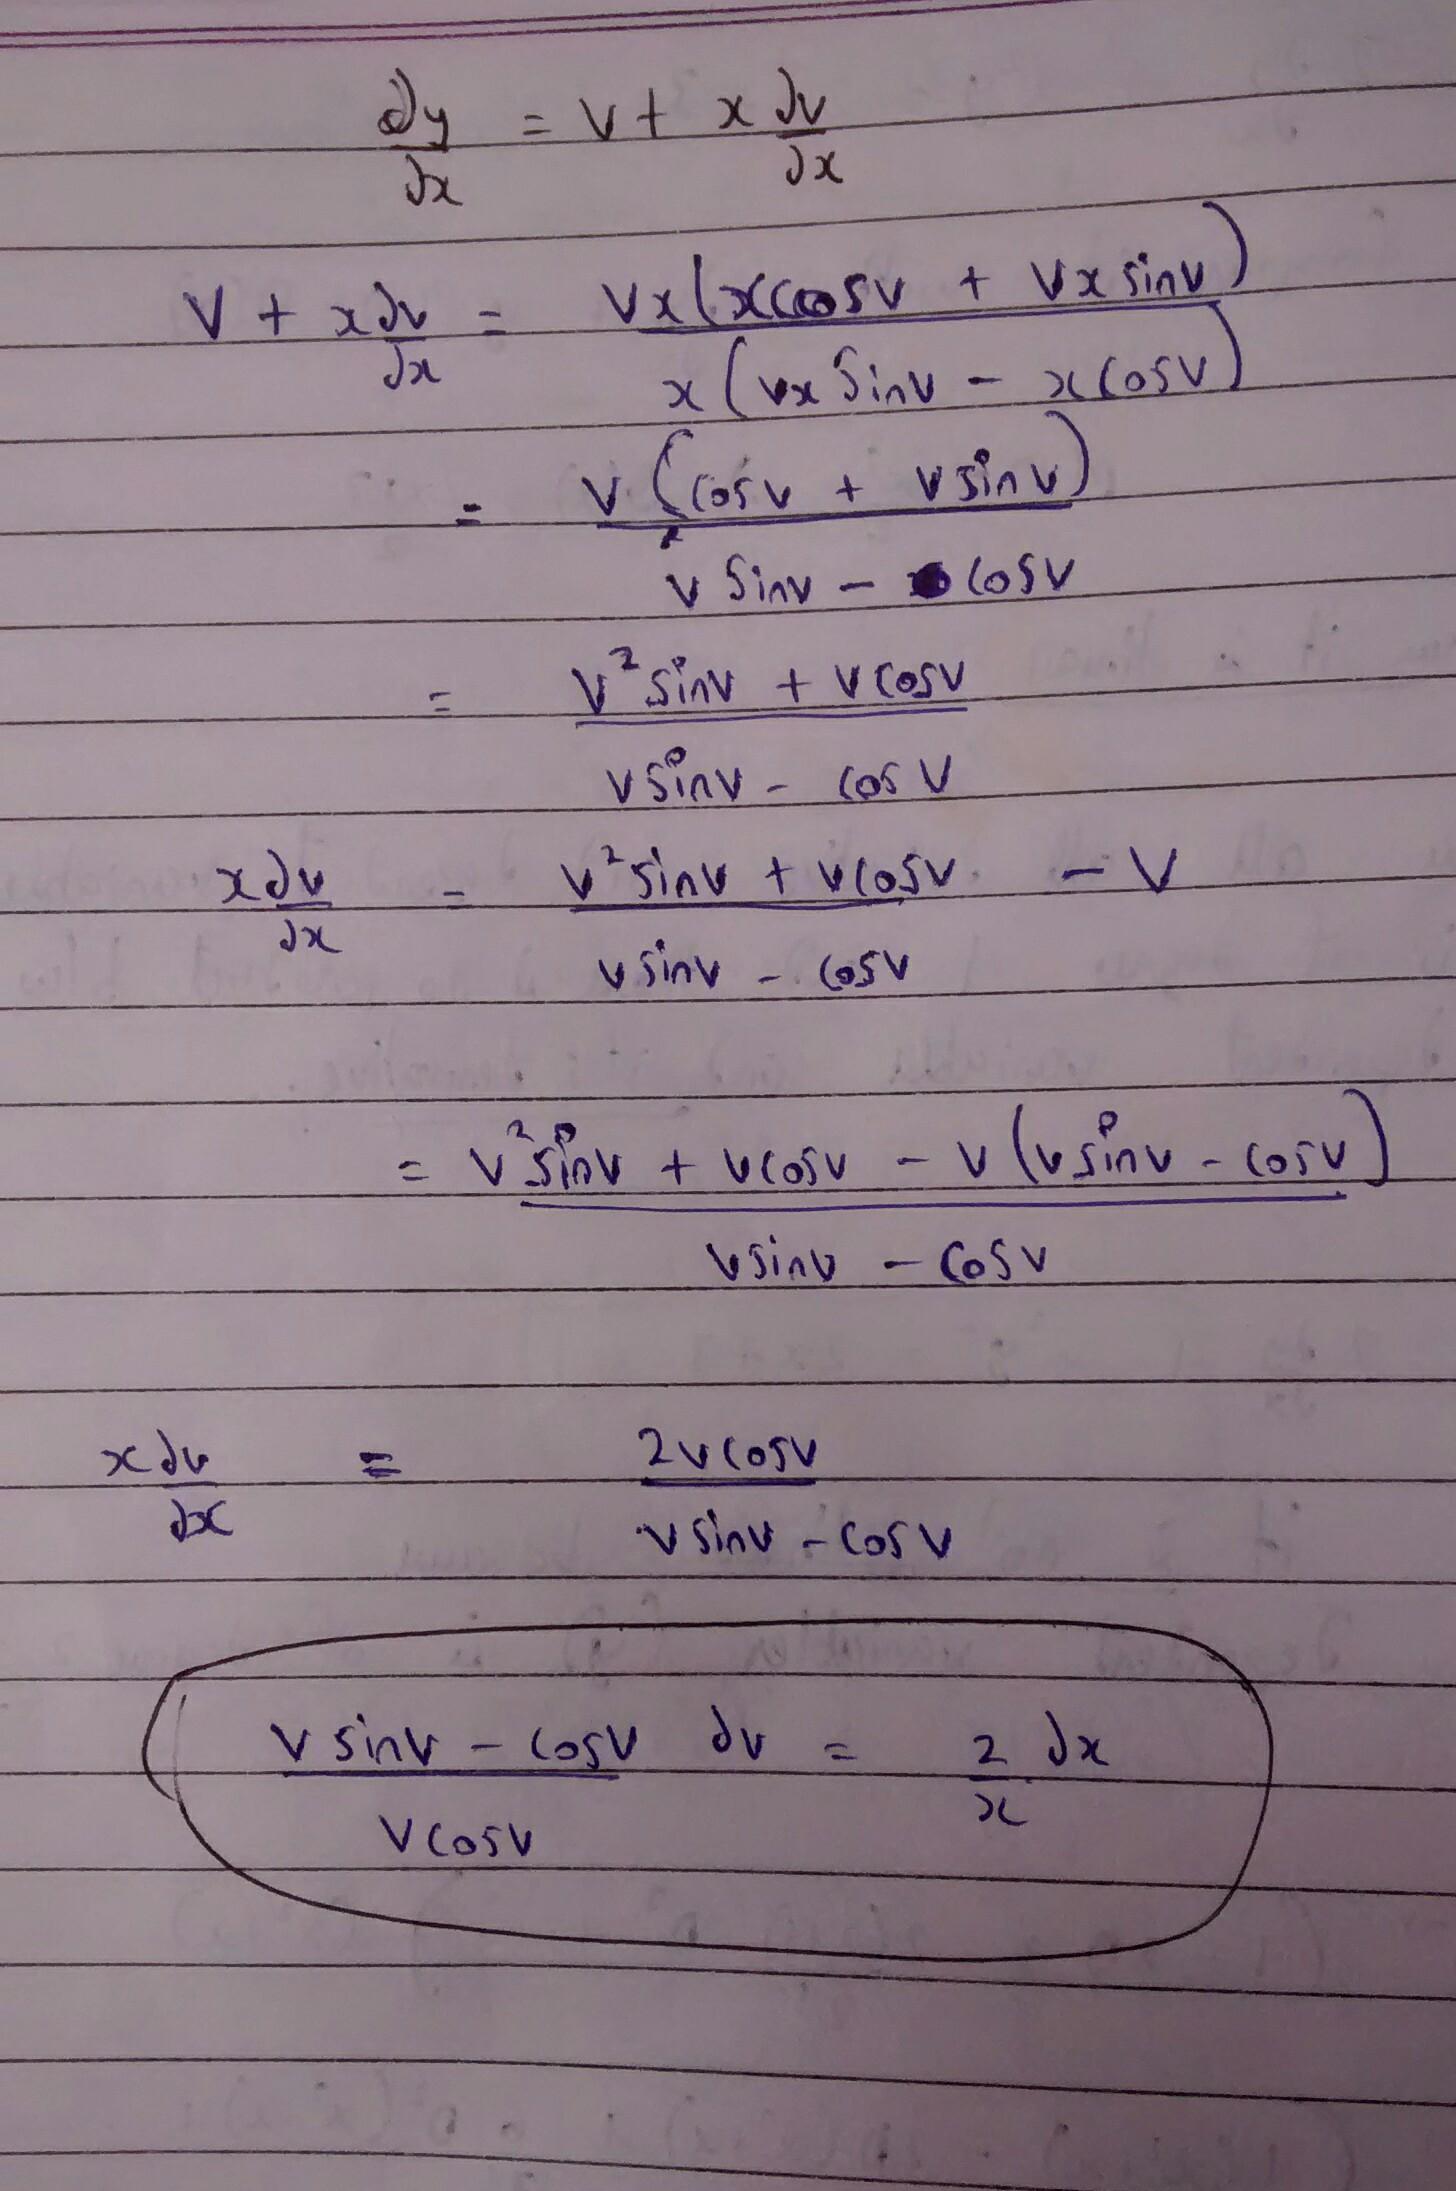 dy/dx = v + x dv/dx
v + x dv/dx = vx(xcosv + vx sinv) / x(vx sinv - xcosv)
= v(cosv + v sinv) / v sinv - cosv
= v² sinv + v cosv / v sinv - cosv
x dv/dx = v² sinv + v cosv / v sinv - cosv - v
= v² sinv + v cosv - v(v sinv - cosv) / v sinv - cosv
x dv/dx = 2v cosv / v sinv - cosv
v sinv - cosv / v cosv dv = 2/x dx